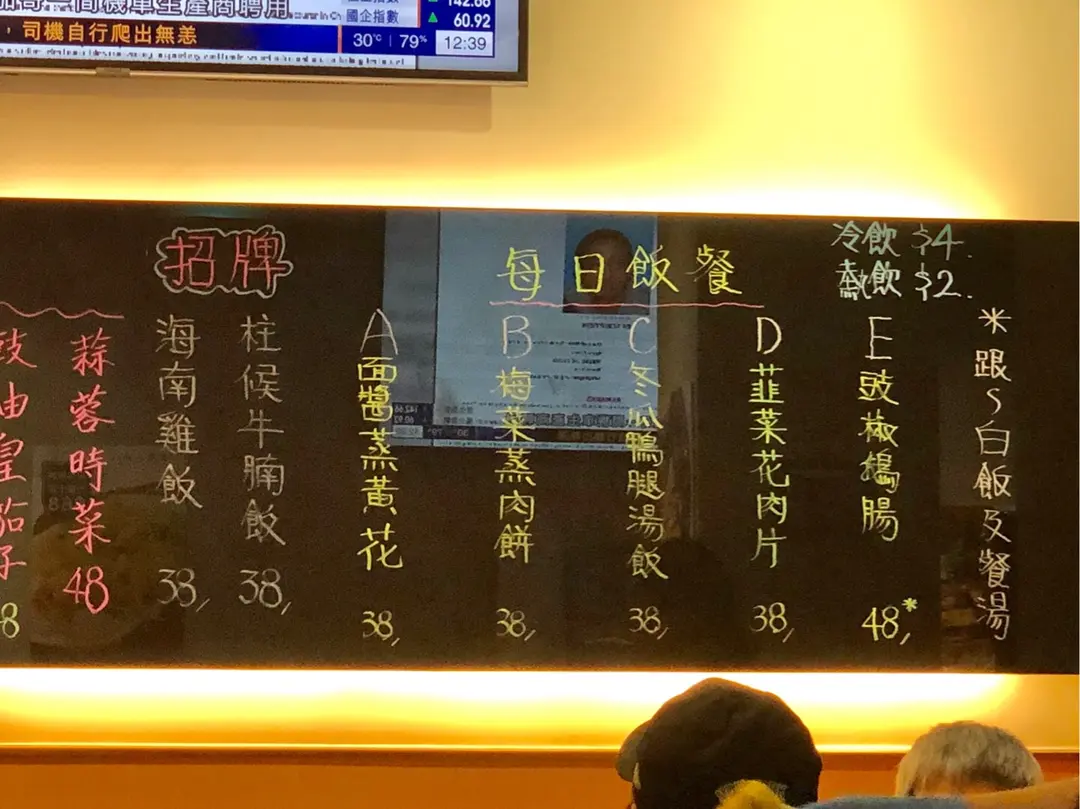 國企指數
142.66
60.92
，司機自行爬出無恙
30°C | 79%
12:39
招牌
每日飯餐
冷飲 $4.
熱飲 $2.
豉油皇茄子
8
蒜蓉時菜 48
海南雞飯 38,
柱候牛腩飯 38,
A 面醬蒸黃花 38,
B 梅菜蒸肉餅 38,
C 冬瓜鴨腿湯飯 38,
D 韮菜花肉片 38,
E 豉椒鵝腸 48,*
*跟S白飯及餐湯